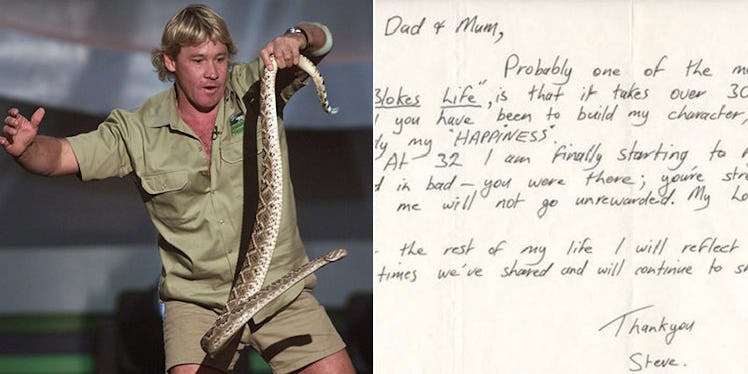 Dad & Mum,
Probably one of the
Blokes Life", is that it takes over 30
you have been to build my character,
my "HAPPINESS".
At 32 I am finally starting to
in bad – you were there; you're
me will not go unrewarded. My
the rest of my life I will reflect
times we've shared and will continue to
Thankyou
Steve.